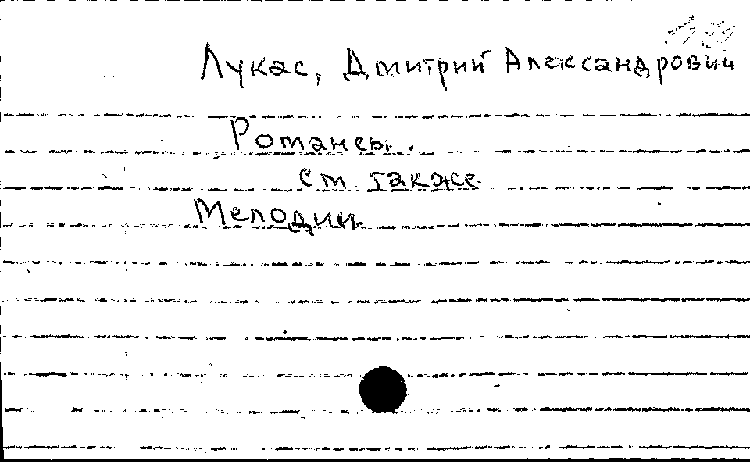 Лукас, Дмитрий Александрович
Романсы.
см также
Мелодии